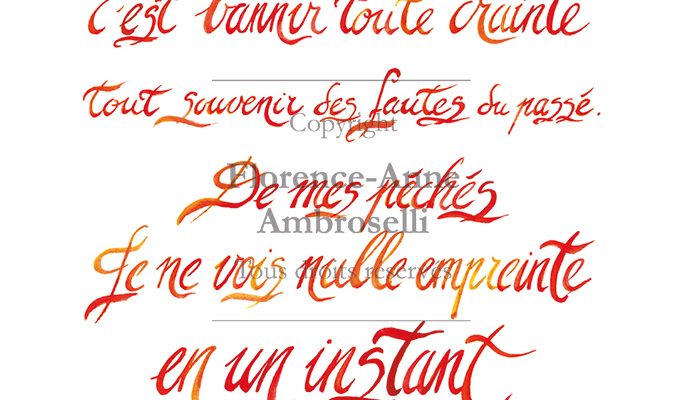 c'est bannir toute crainte
tout souvenir des fautes du passé.
Copyright
De mes péchés
Florence-Anne
Ambroselli
Je ne vois nulle empreinte
Tous droits réservés
en un instant